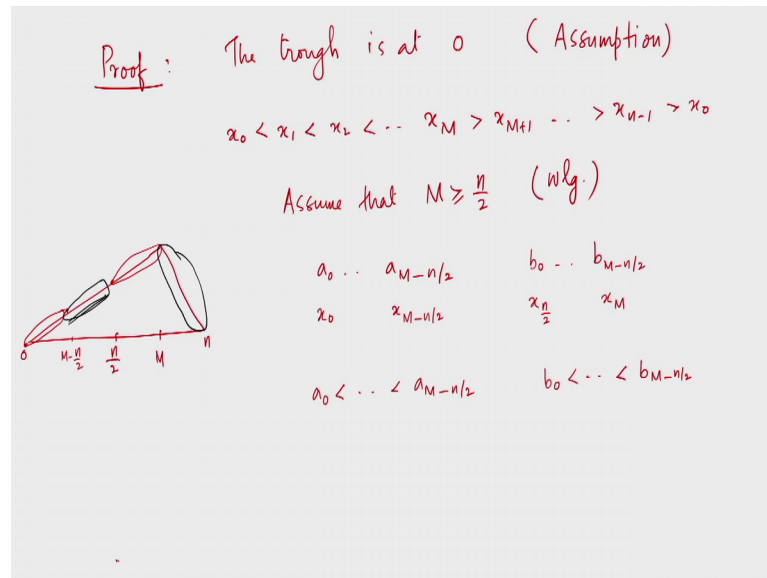 Proof : The trough is at 0 ( Assumption)
x₀ < x₁ < x₂ < .. x_M > x_{M+1} .. > x_{n-1} > x₀
Assume that M ≥ n/2 (wlg.)
a₀ .. a_{M-n/2} b₀ .. b_{M-n/2}
x₀ x_{M-n/2} x_{n/2} x_M
a₀ < .. < a_{M-n/2} b₀ < .. < b_{M-n/2}
0 M-n/2 n/2 M n